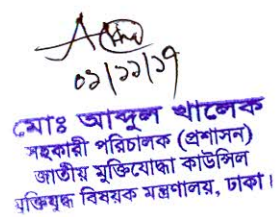 ০১/১১/১৭
মোঃ আব্দুল খালেক
সহকারী পরিচালক (প্রশাসন)
জাতীয় মুক্তিযোদ্ধা কাউন্সিল
মুক্তিযুদ্ধ বিষয়ক মন্ত্রণালয়, ঢাকা।